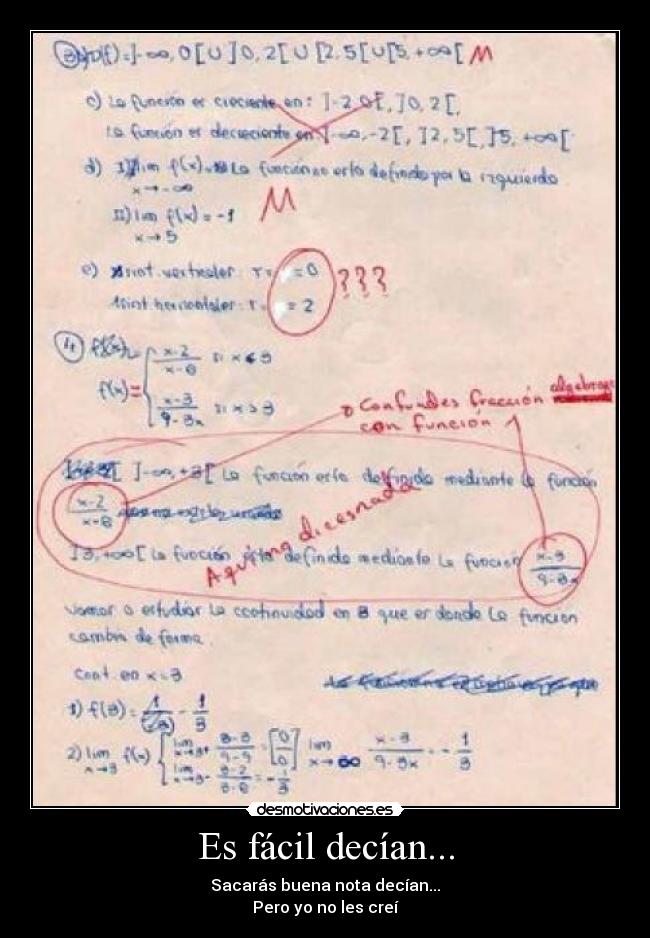 ③ b) D(f)=]-∞,0[U]0,2[U[2,5[U[5,+∞[ M
c) La función es creciente en: ]-2,0[, ]0,2[,
La función es decreciente en ]-∞,-2[, ]2,5[, ]5,+∞[
d) I) lim f(x) = La función no esta definida por la izquierda
x→-∞
II) lim f(x) = -1 M
x→5
e) Asint. verticales: r = x = 0 ???
Asint. horizontales: r = = 2
④ f(x)=
f(x)= { x-2/x-6 si x<3
x-3/9-3x si x>3
Confundes fracción algebraica
con función
]-∞,+3[ La función esta definida mediante la función
x-2/x-6
Aquí no dices nada
]3,+∞[ La función esta definida mediante la función x-3/9-3x
Vamos a estudiar la continuidad en 3 que es donde la funcion
cambia de forma.
Cont. en x=3
1) f(3) = - 1/3
2) lim f(x) { lim x→3+ 3-3/9-9 = [0/0] lim x→∞ x-3/9-3x = - 1/3
x→3 lim x→3- 3-2/3-6 = - 1/3
desmotivaciones.es
Es fácil decían...
Sacarás buena nota decían...
Pero yo no les creí